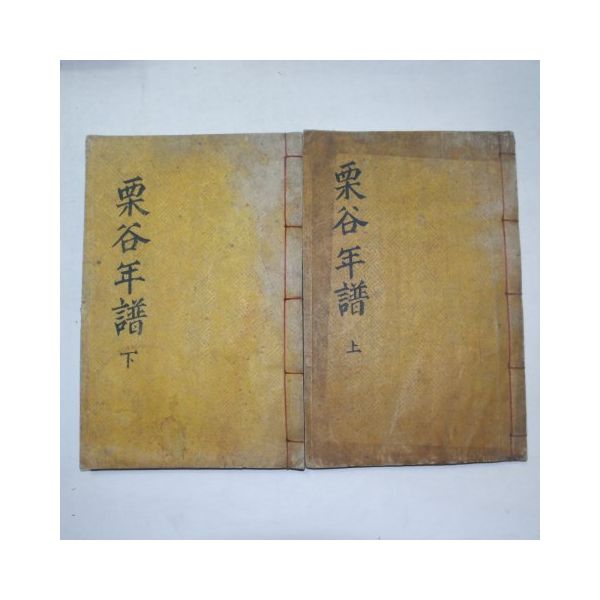 栗谷年譜
上
栗谷年譜
下